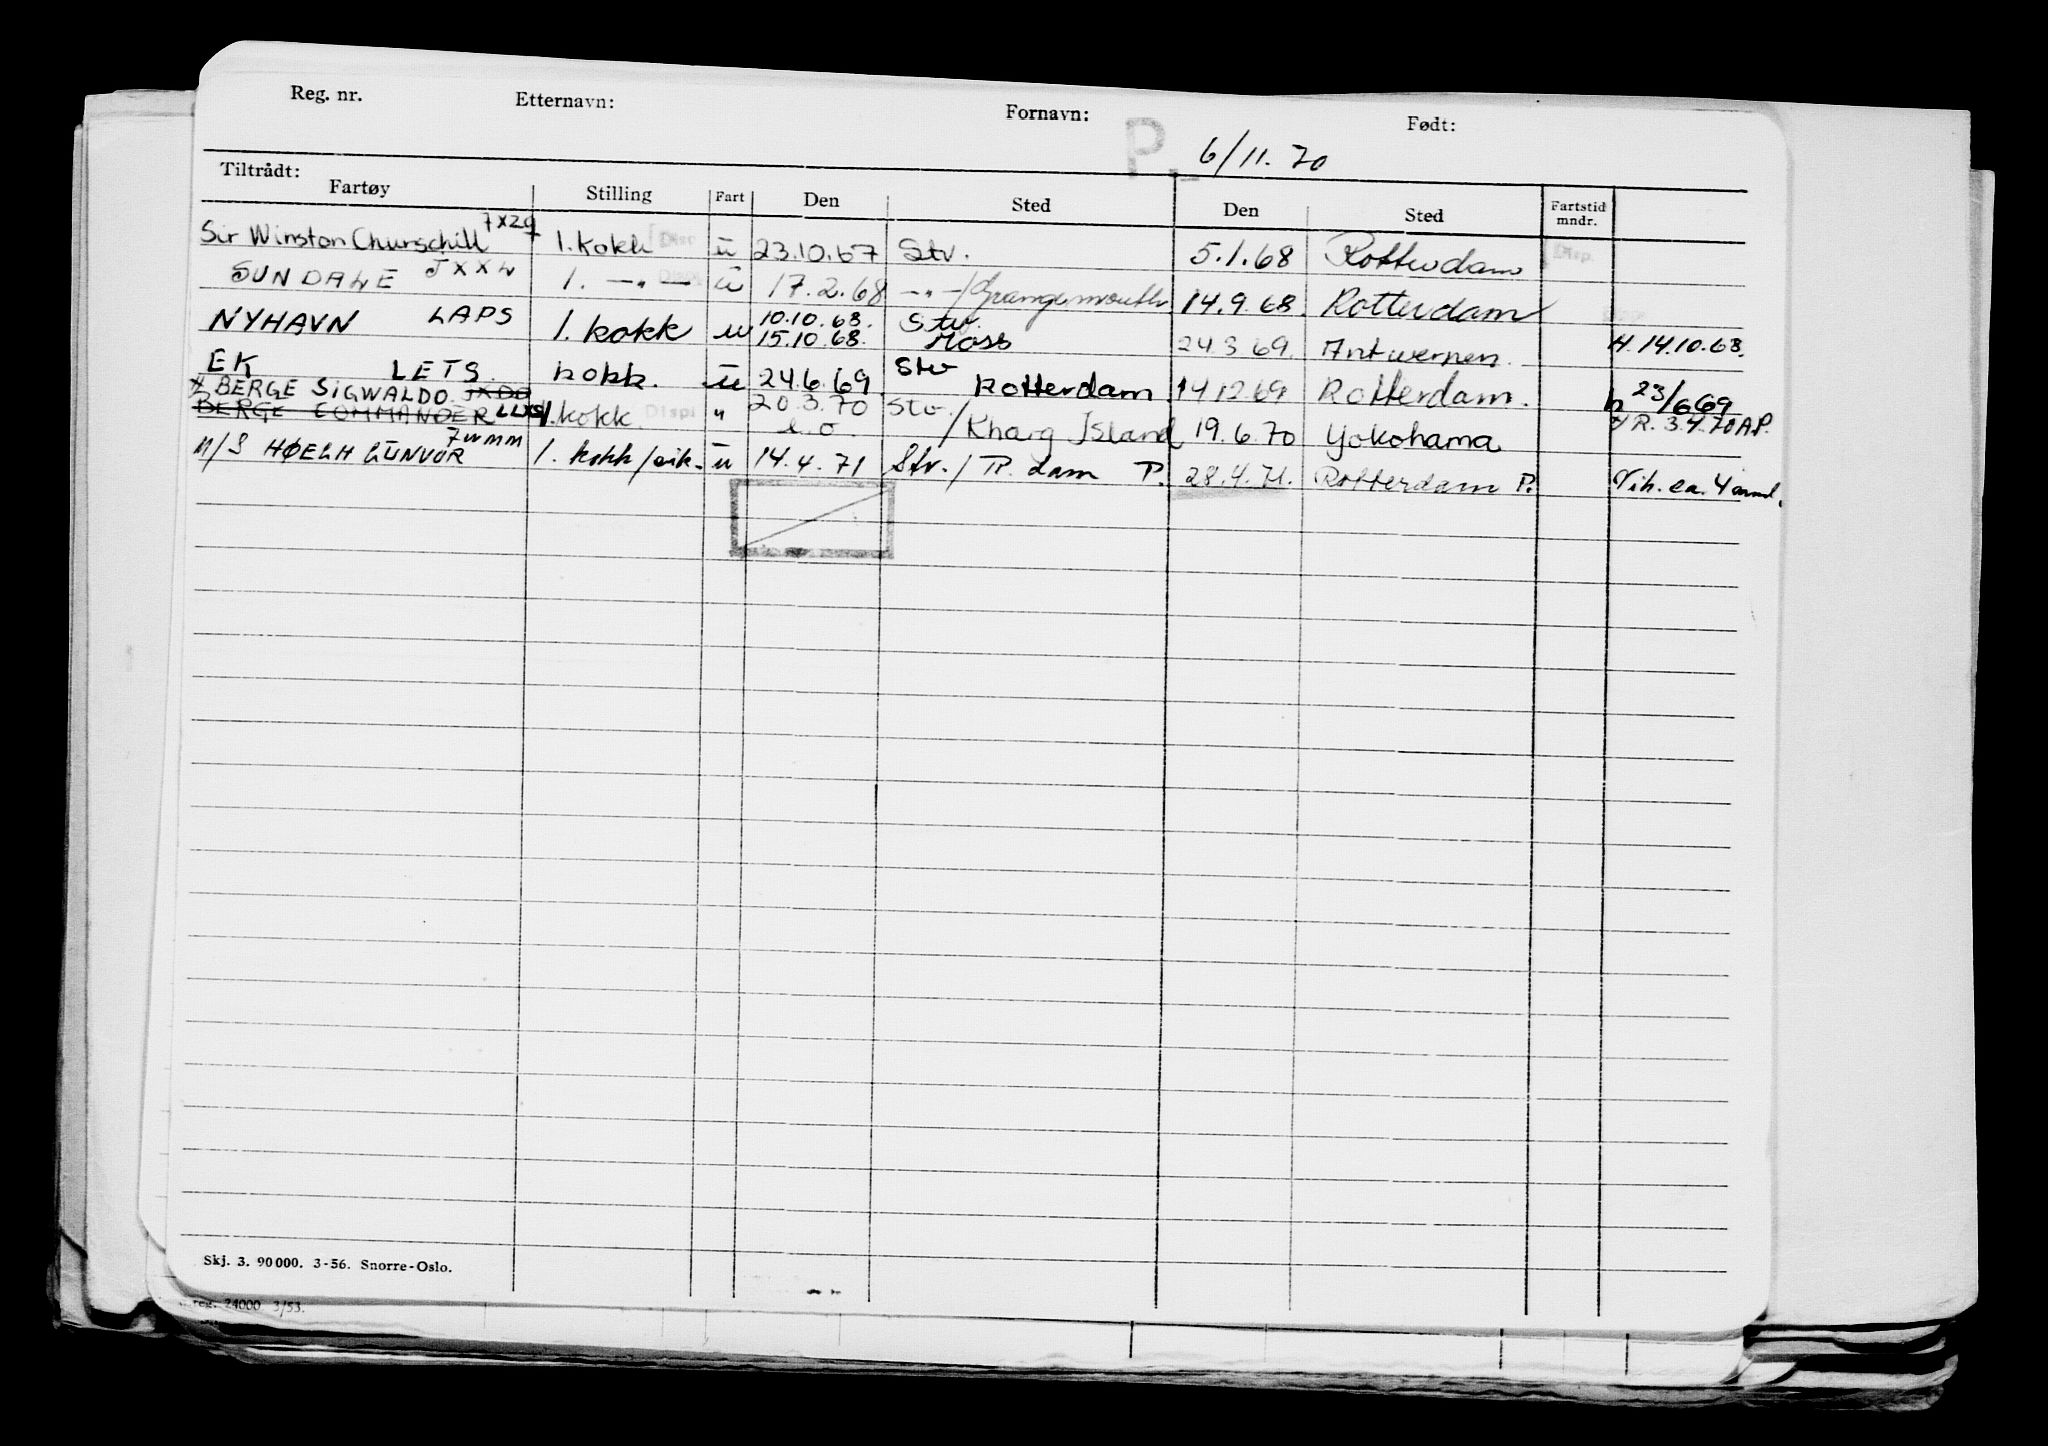 Reg. nr. Etternavn: Fornavn: Født:
P. 6/11. 70
Tiltrådt:
Fartøy Stilling Fart Den Sted Den Sted Fartstid mndr.
Sir Winston Churschill 1. Kokk Disp ü 23.10.67 Stv. 5.1.68 Rotterdam Disp.
SUNDALE JXXL 1. —„— Disp ü 17.2.68 —„—/Grangemouth 14.9.68 Rotterdam
NYHAVN LAPS 1. kokk u 10.10.68. Stv. 24 3 69. Antwerpen. H. 14.10.68.
15.10.68. Moss
EK LETS. kokk. ü 24.6.69 Stv Rotterdam 14 12 69 Rotterdam. h 23/6 69
x BERGE SIGWALDO JXDO
BERGE COMMANDER LLXS 1. kokk Displ „ 20.3.70 Stv. / Kharg Island 19.6.70 Yokohama x R. 3.4.70 A.P.
M/S HØEGH GUNVOR 1. kokk/eik. ü 14.4.71 Stv. / R.dam P. 28.4.71. Rotterdam P. Vih. ca. 4 mnd.
Skj. 3. 90 000. 3-56. Snorre-Oslo.
reg. 24000 3/53.